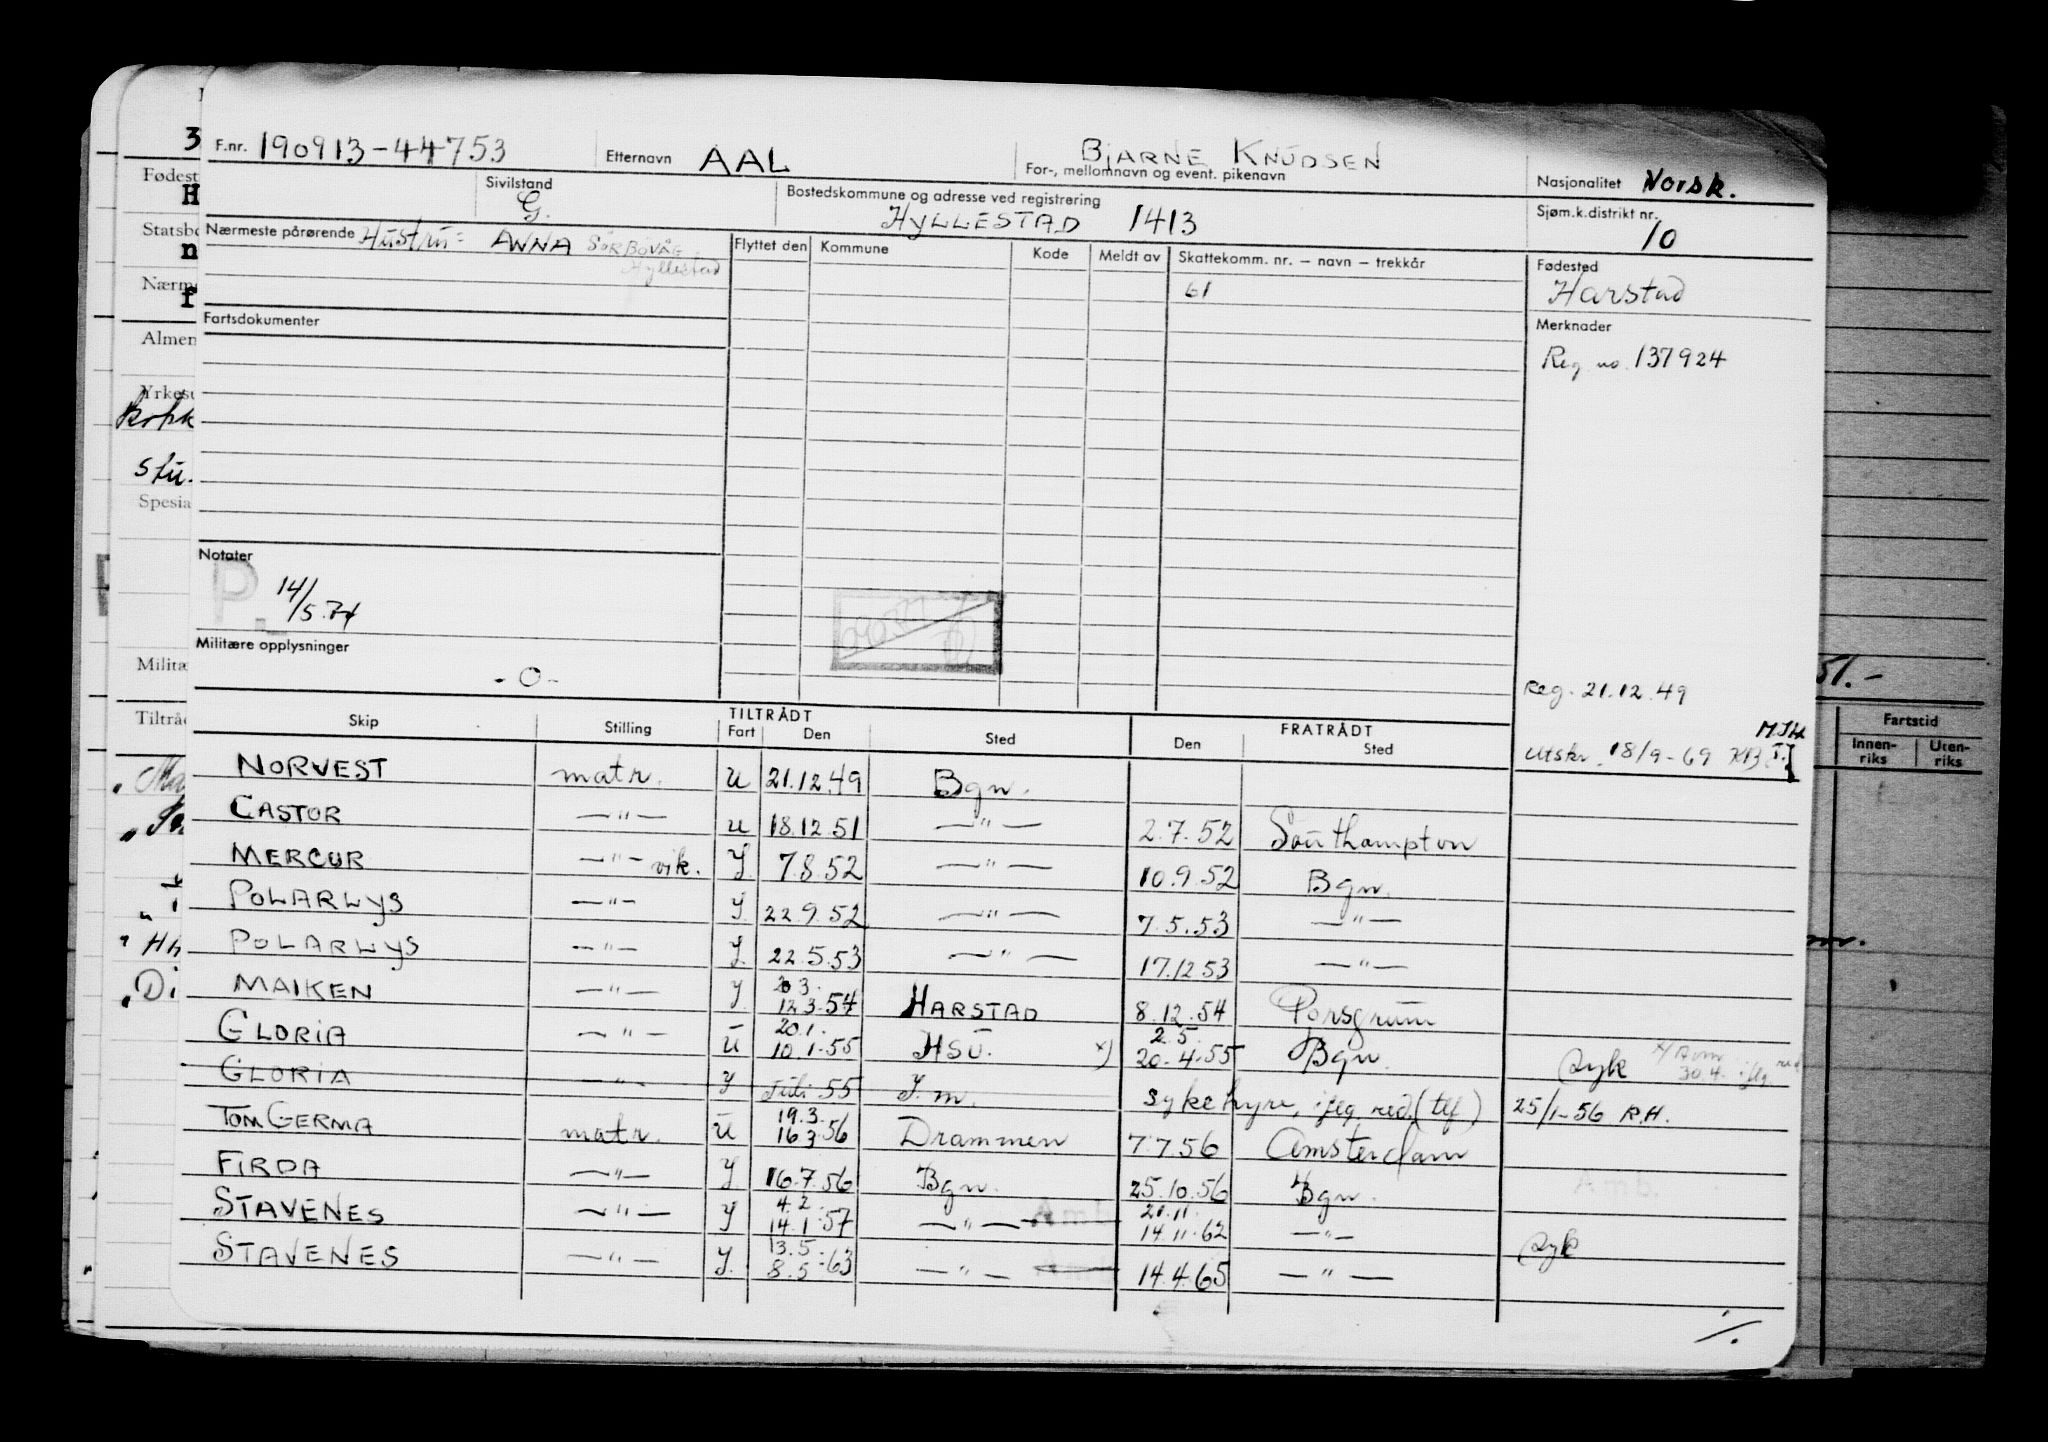 F.nr. 190913-44753 Etternavn AAL BJARNE KNUDSEN
For-, mellomnavn og event. pikenavn
Nasjonalitet Norsk.
Sivilstand G. Bostedskommune og adresse ved registrering HYLLESTAD 1413
Sjøm.k.distrikt nr. 10
Nærmeste pårørende Hustru: ANNA SØRBØVÅG Hyllestad
Flyttet den Kommune Kode Meldt av Skattekomm. nr. – navn – trekkår
61
Fødested
Harstad
Fartsdokumenter
Merknader
Reg no. 137924
Notater
14/5.74
Militære opplysninger
- O -
Reg. 21.12.49
Utskr. 18/9-69
Skip Stilling TILTRÅDT Fart Den Sted FRATRÅDT Den Sted
NORVEST matr. U 21.12.49 Bgn.
CASTOR —"— U 18.12.51 —"— 2.7.52 Southampton
MERCUR —"— vik. J. 7.8.52 —"— 10.9.52 Bgn.
POLARLYS —"— J. 22.9.52 —"— 7.5.53 —"—
POLARLYS —"— J. 22.5.53 —"— 17.12.53 —"—
MAIKEN —"— J. 12.3.54 HARSTAD 8.12.54 Porsgrunn
GLORIA —"— U 20.1. 10.1.55 HSU. x) 2.5. 20.4.55 Bgn. Syk
GLORIA —"— J 55 J.m. sykehyre, i flg. red. (tlf) 25/1-56 R.H.
TOM GERMA matr. U 19.3. 16.3.56 Drammen 7.7.56 Amsterdam
FIRDA —"— J 16.7.56 Bgn. 25.10.56 Bgn.
STAVENES —"— J 4.2. 14.1.57 —"— 21.11. 14.11.62 —"— Syk
STAVENES —"— J. 13.5. 8.5.63 —"— 14.4.65 —"—
Amb.
Militæ
Fartstid
Innen-riks Uten-riks